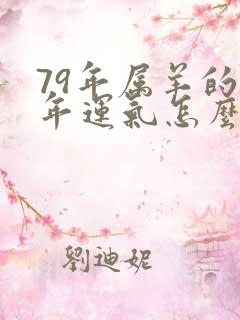 79年属羊的
年運氣怎麼
劉迪妮